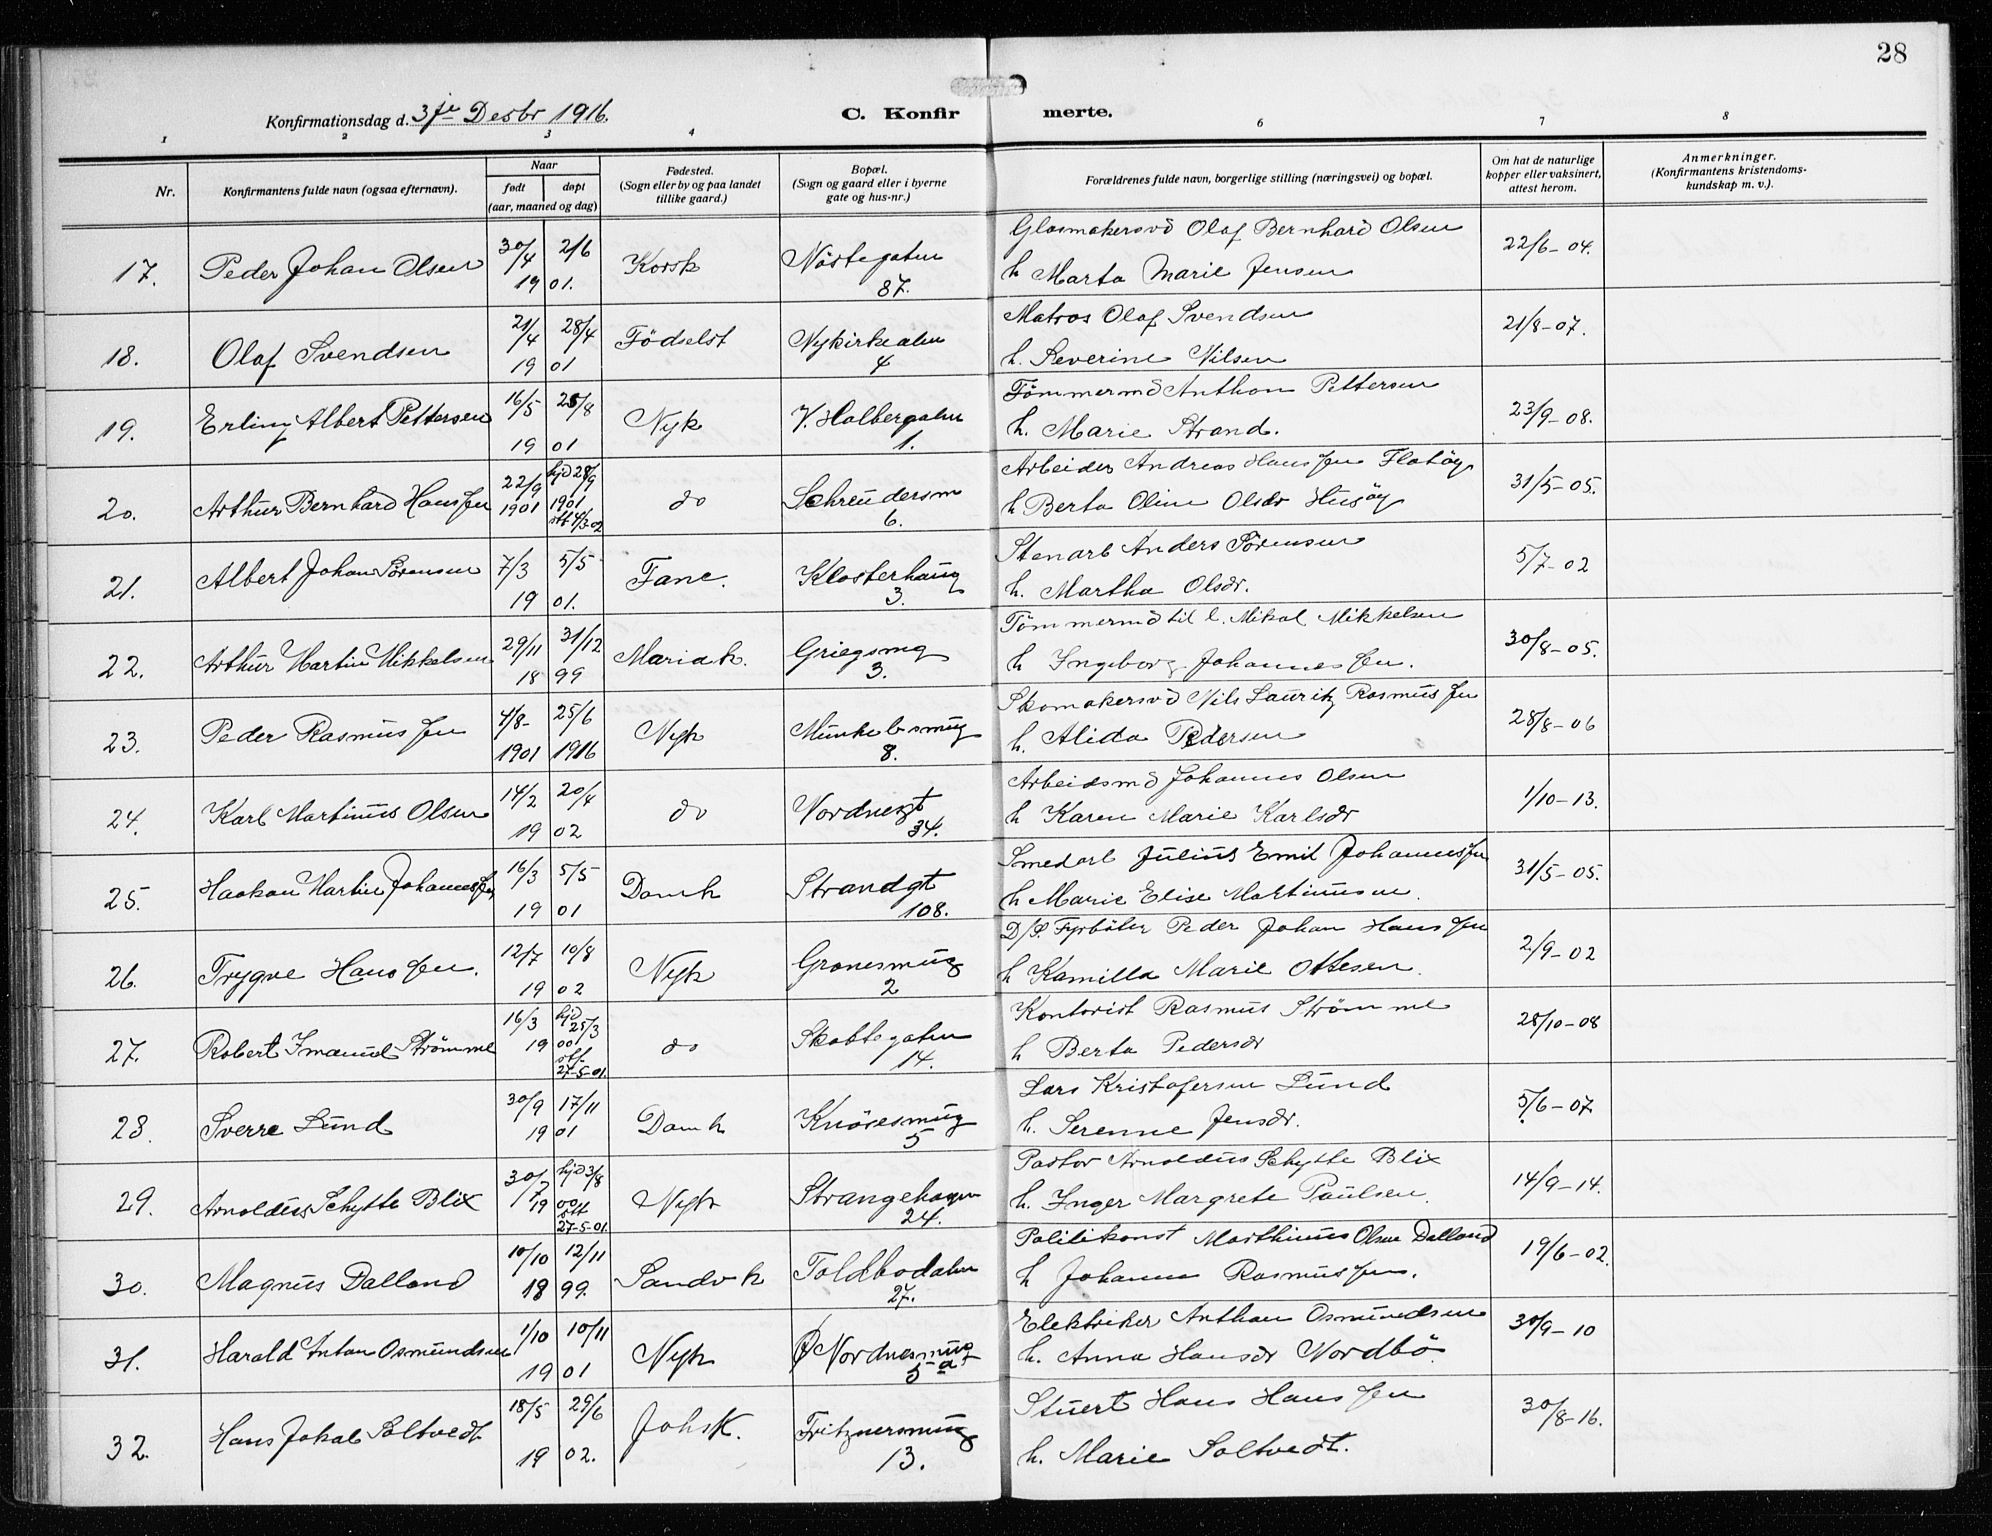 28
Konfirmationsdag d. 3je Desbr 1916.
C. Konfirmerte.
1 2 3 4 6 7 8
Nr.
Konfirmantens fulde navn (ogsaa efternavn).
Naar
født
døpt
(aar, maaned og dag)
Fødested.
(Sogn eller by og paa landet
tillike gaard.)
Bopæl.
(Sogn og gaard eller i byerne
gate og hus-nr.)
Forældrenes fulde navn, borgerlige stilling (næringsvei) og bopæl.
Om hat de naturlige
kopper eller vaksinert,
attest herom.
Anmerkninger.
(Konfirmantens kristendoms-
kundskap m. v.).
17. Peder Johan Olsen 30/4 2/6 1901. Korsk Nöstegaten 87. Glasmakersvd Olaf Bernhard Olsen
h Marta Marie Jensen 22/6-04.
18. Olaf Svendsen 21/4 28/4 1901 Födselst Nykirkealm 4 Matros Olaf Svendsen
h. Severine Nilsen 21/8-07.
19. Erling Albert Pettersen 16/5 25/8 1901 Nyk V. Holbergalm 1. Tömmermd Anthon Pettersen
h. Marie Strand. 23/9-08.
20. Arthur Bernhard Hanssen 22/9 1901 hjd 28/9 1901 stf 4/3 02 do Schreudersm 6. Arbeider Andreas Hanssen Flatöy
h Berta Oline Olsdr Husöy 31/5-05.
21. Albert Johan Sörensen 7/3 5/5 1901. Fane. Klosterhaug 3. Stenarb Anders Sörensen
h. Martha Olsdr. 5/7-02
22. Arthur Martin Mikkelsen 29/11 31/12 1899 Mariak. Griegsmg 3. Tömmermd til l. Mikal Mikkelsen
h Ingeborg Johannessen. 30/8-05.
23. Peder Rasmussen 4/8- 1901 25/6 1916 Nyk Munkebsmug 8. Skomakersvd Nils Lauritz Rasmussen
h. Alida Pedersen 28/8-06
24. Karl Martinus Olsen 14/2 20/4 1902 do Nordnesgt 34. Arbeidsmd Johannes Olsen
h Karen Marie Karlsdr 1/10-13.
25. Haakon Martin Johannessen 16/3 5/5 1901 Domk Strandgt 108. Smedarb Julius Emil Johannessen
h Marie Elise Martinussen 31/5-05.
26. Trygve Hanssen. 12/7 10/8 1902 Nyk Gronesmug 2 D/S. Fyrböter Peder Johan Hanssen
h Kamilla Marie Ottesen. 2/9-02
27. Robert Imanuel Strömme 16/3 19 hjd 25/3 00 stf. 27-5-01. do Skottegaten 14. Kontorist Rasmus Strömme
h Berta Pedersdr 28/10-08
28. Sverre Lund 30/9 17/11 1901 Domk Knöresmug 5 Lars Kristofersen Lund
h. Serenne Jensdr. 5/6-07.
29. Arnoldus Schytte Blix 30/7 19 hjd 3/8 00 stf 27-5-01. Nyk Strangehagen 24. Pastor Arnoldus Schytte Blix
h. Inger Margrete Paulsen. 14/9-14.
30. Magnus Dalland 10/10 12/11 1899. Sandvk Toldbodalm 27. Politikonst Marthinus Olsen Dalland
h Johanne Rasmussen. 19/6-02.
31. Harald Anton Osmundsen 1/10 10/11 1901 Nyk Ø Nordnesmug 5a Elektriker Anthon Osmundsen
h. Anna Hansdr Nordbö. 30/9-10
32. Hans Jakob Soltvedt 18/5 29/6 1902. Johsk. Fritznersmug 13. Stuert Hans Hanssen
h. Marie Soltvedt. 30/8-16.